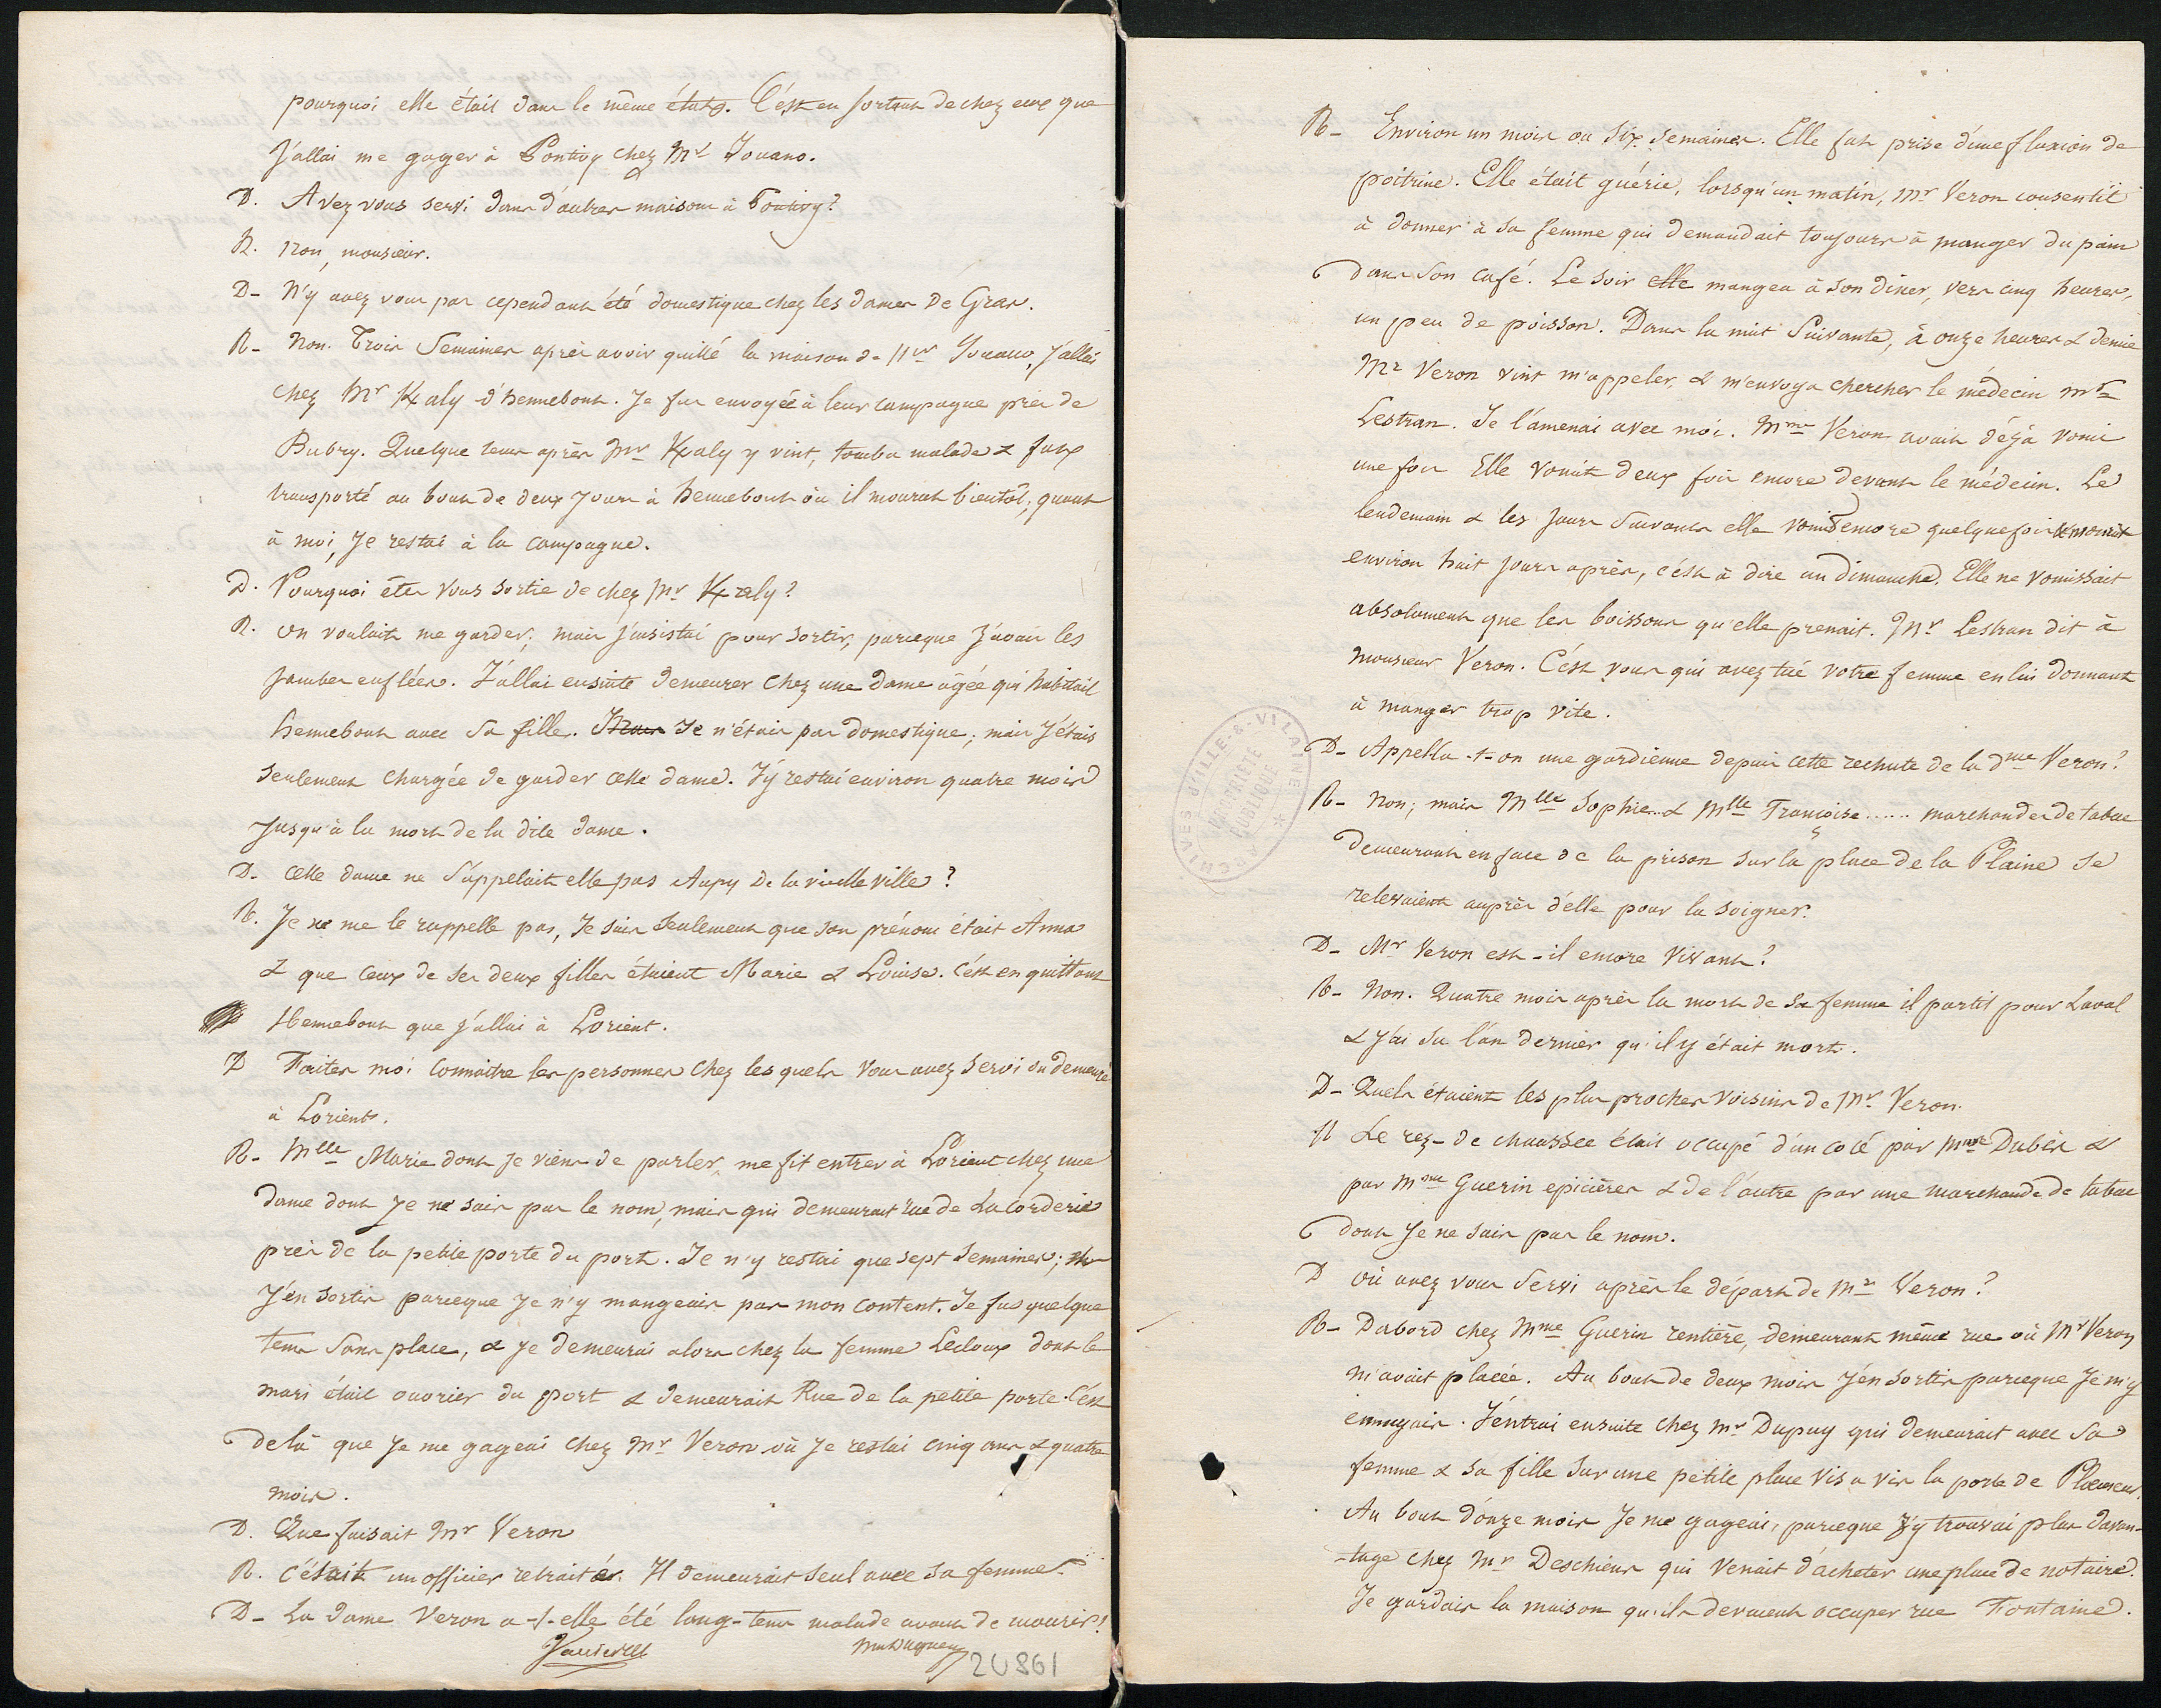 pourquoi elle était dans le même état. C'est en sortant de chez eux que
j'allai me gager à Pontivy chez Mr Jouano.
D. Avez vous servi dans d'autres maisons à Pontivy?
R. Non, monsieur.
D- N'y avez vous pas cependant été domestique chez les dames De Gras.
R- Non. Trois Semaines après avoir quitté la maison de Mr Jouano, j'allai
chez Mr Kaly d'hennebont. Je fus envoyée à leur campagne près de
Bubry. Quelque tems après Mr Kaly y vint, tomba malade & fut
transporté au bout de deux jours à hennebont où il mourut bientôt; quant
à moi, je restai à la campagne.
D. Pourquoi êtes vous sortie de chez Mr Kaly?
R. on voulait me garder, mais j'insistai pour sortir, parceque j'avais les
jambes enflées. J'allai ensuite demeurer chez une dame âgée qui habitait
hennebont avec sa fille. Je n'étais pas domestique; mais j'étais
seulement chargée de garder cette dame. J'y restai environ quatre mois
jusqu'à la mort de la dite dame.
D- Cette dame ne s'appelait elle pas Aupy De la vieille ville?
R. Je ne me le rappelle pas, Je sais seulement que son prénom était Anna
& que ceux de ses deux filles étaient Marie & Louise. C'est en quittant
Hennebont que j'allai à Lorient.
D Faites moi connaitre les personnes chez les quels vous avez servi ou demeuré
à Lorient.
R- Mlle Marie dont je viens de parler, me fit entrer à Lorient chez une
dame dont je ne sais pas le nom, mais qui demeurait rue de La Corderie
près de la petite porte du port. Je n'y restai que sept semaines;
j'en sortis parceque je n'y mangeais pas mon content. Je fus quelque
tems sans place, & je demeurai alors chez la femme Lecloux dont le
mari était ouvrier du port & demeurait Rue de la petite porte. C'est
de là que je me gageai chez Mr Veron où je restai cinq ans & quatre
mois.
D. Que faisait Mr Veron
R. C'était un officier retraité. Il demeurait seul avec sa femme.
D- La dame Veron a-t-elle été long-tems malade avant de mourir?
20861
R- Environ un mois ou six semaines. Elle fut prise d'une fluxion de
poitrine. Elle était guérie, lorsqu'un matin, Mr Veron consentit
à donner à sa femme qui demandait toujours à manger du pain
dans son café. Le soir elle mangea à son diner, vers cinq heures,
un peu de poisson. Dans la nuit suivante, à onze heures & demie
Mr Veron vint m'appeler & m'envoya chercher le médecin Mr
Lestran. Je l'amenai avec moi. Mme Veron avait déjà vomi
une fois Elle vomit deux fois encore devant le médecin. Le
lendemain & les jours suivants elle vomit encore quelquefois & mourut
environ huit jours après, c'est à dire un dimanche. Elle ne vomissait
absolument que les boissons qu'elle prenait. Mr Lestran dit à
monsieur Veron. C'est vous qui avez tué votre femme en lui donnant
à manger trop vite.
D- Appella-t-on une gardienne depuis cette rechute de la dme Veron?
R- Non; mais Mlle Sophie... & Mlle Françoise...... marchandes de tabac
demeurant en face de la prison sur la place de la Plaine se
relevaient auprès d'elle pour la soigner.
D- Mr Veron est-il encore vivant?
R- Non. Quatre mois après la mort de sa femme il partit pour Laval
& j'ai su l'an dernier qu'il y était mort.
D- Quels étaient les plus proches voisins de Mr Veron.
R Le rez-de chaussée était occupé d'un coté par Mme Dubès &
par Mme Guerin epicières & de l'autre par une marchande de tabac
dont je ne sais pas le nom.
D où avez vous servi après le départ de Mr Veron?
R- Dabord chez Mme Guerin rentière, demeurant même rue où Mr Veron
m'avait placée. Au bout de deux mois j'en sortis parceque je m'y
ennuyais. J'entrai ensuite chez Mr Dupuy qui demeurait avec sa
femme & sa fille sur une petite place vis a vis la porte de Ploemeur.
Au bout d'onze mois je me gageai, parceque j'y trouvai plus d'avan-
-tage chez Mr Deschiens qui venait d'acheter une place de notaire.
Je gardais la maison qu'ils devaient occuper rue Fontaine.
ARCHIVES D'ILLE-&-VILAINE
PROPRIÉTÉ
PUBLIQUE